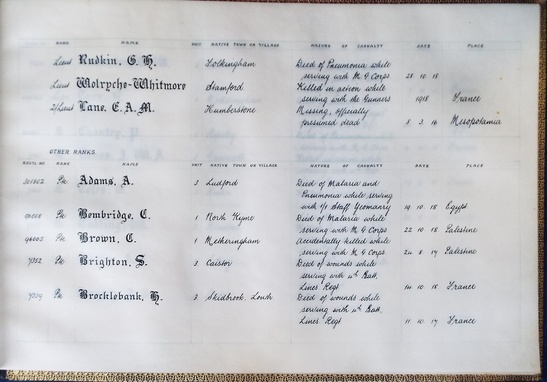 RANK NAME UNIT NATIVE TOWN OR VILLAGE NATURE OF CASUALTY DATE PLACE
Lieut Rudkin, G. H. Folkingham Died of Pneumonia while
serving with M G Corps 28 10 18
Lieut Welryche-Whitmore Stamford Killed in action while
serving with the Gunners 1918 France
2/Lieut Lane, E. A. M. Humberstone Missing, officially
presumed dead 8 3 16 Mesopotamia
OTHER RANKS.
REGTL NO RANK NAME UNIT NATIVE TOWN OR VILLAGE NATURE OF CASUALTY DATE PLACE
Pte Adams, A. 3 Ludford Died of Malaria and
Pneumonia while serving
with 1/1 Staff. Yeomanry 19 10 18 Egypt
Pte Bembridge, C. 1 North Kyme Died of Malaria while
serving with M G Corps 22 10 18 Palestine
Pte Brown, C. 1 Metheringham Accidentally killed while
serving with M G Corps 24 8 17 Palestine
Pte Brighton, S. 3 Caistor Died of wounds while
serving with 4th Batt.
Lincs' Regt 14 10 18 France
Pte Brocklebank, H. 3 Skidbrook, Louth Died of wounds while
serving with 4th Batt.
Lincs' Regt. 11 10 17 France